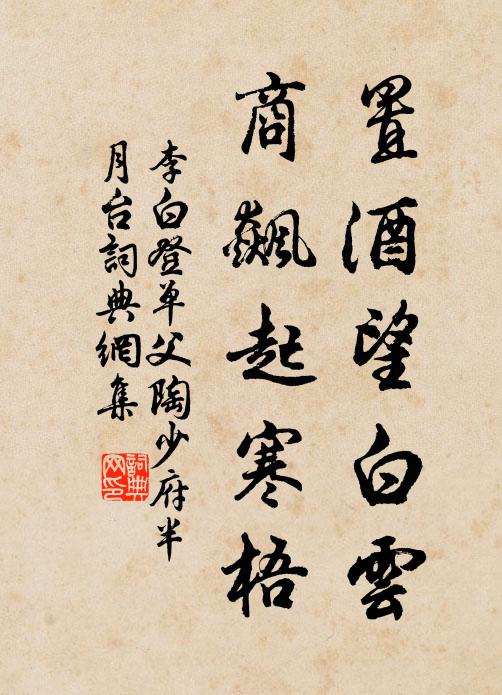 置酒望白雲
商飆起寒梧
李白登單父陶少府半
月台詞典網集
詞典
网印